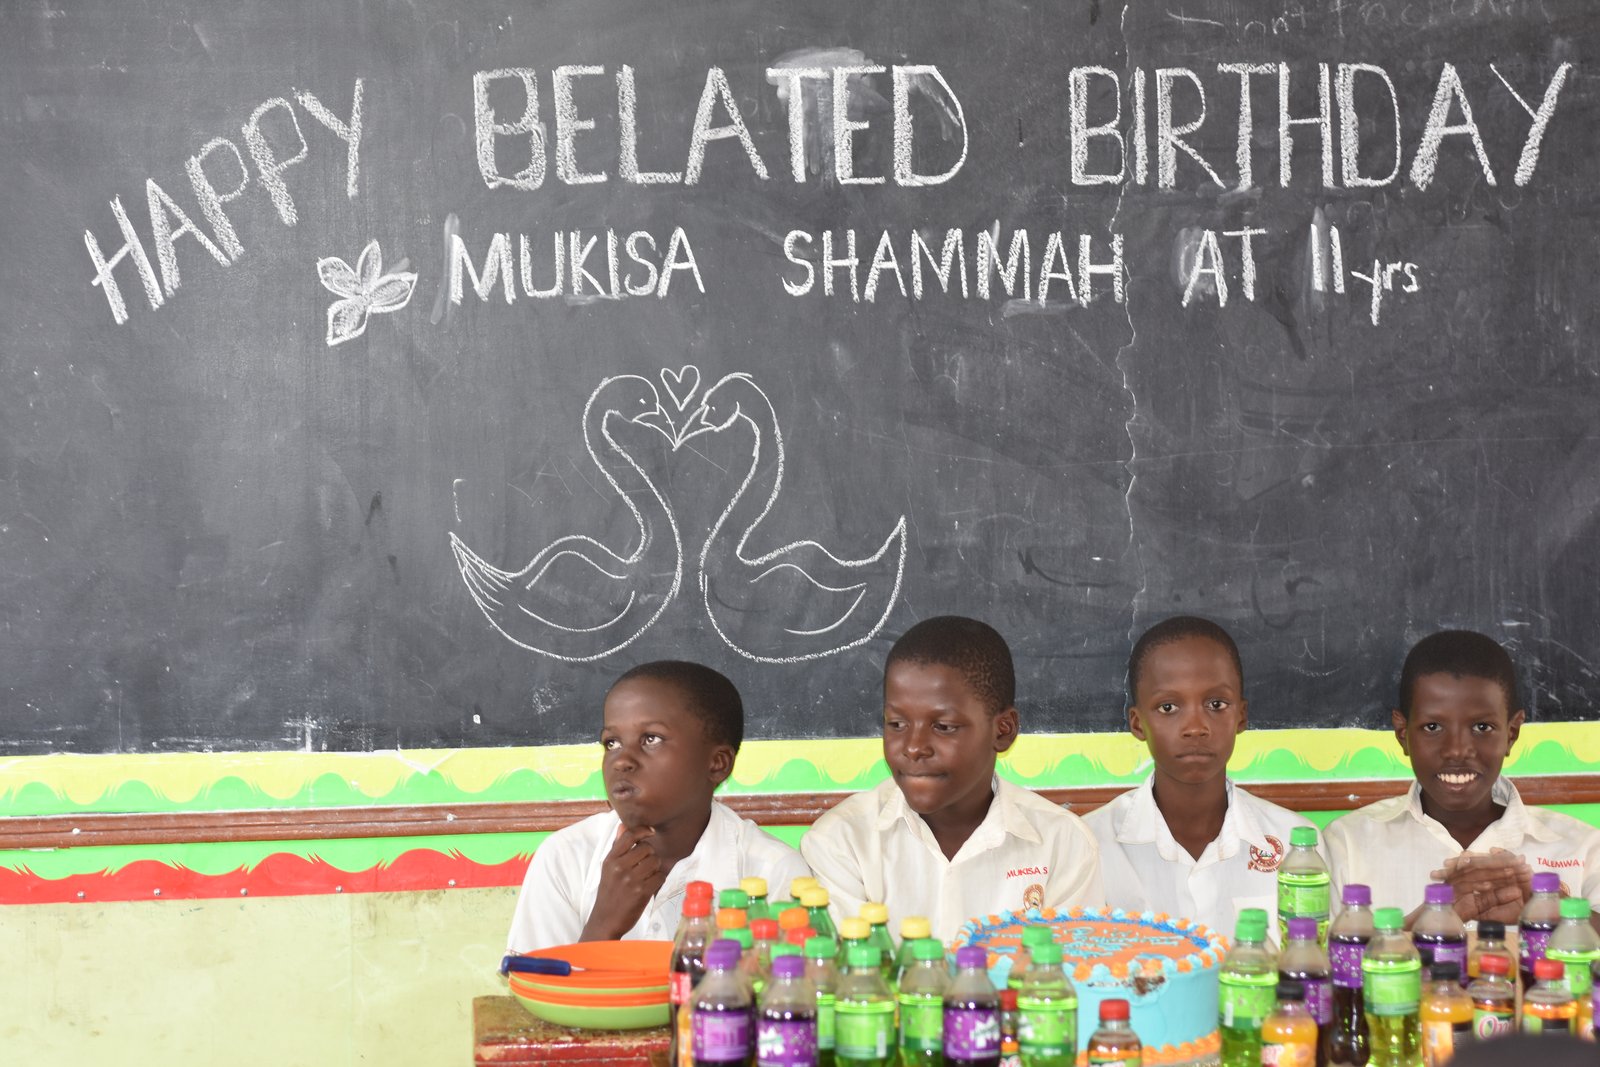 HAPPY BELATED BIRTHDAY
MUKISA SHAMMAH AT 11 yrs
MUKISA S
TALEMWA